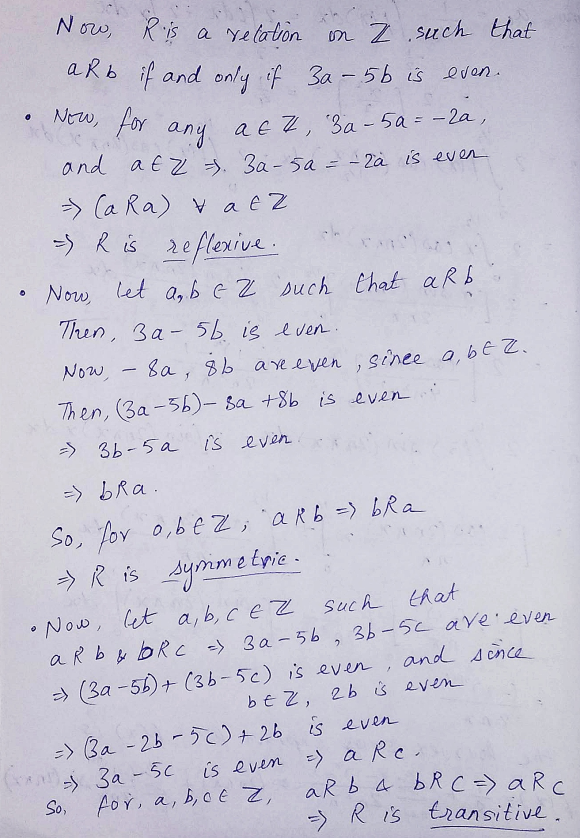 Now, R is a relation on ℤ such that
aRb if and only if 3a - 5b is even.
• Now, for any a ∈ ℤ, 3a - 5a = -2a,
and a ∈ ℤ ⇒ 3a - 5a = -2a is even
⇒ (aRa) ∀ a ∈ ℤ
⇒ R is reflexive.
• Now, let a, b ∈ ℤ such that aRb
Then, 3a - 5b is even.
Now, -8a, 8b are even, since a, b ∈ ℤ.
Then, (3a-5b) - 8a + 8b is even
⇒ 3b - 5a is even
⇒ bRa.
So, for a, b ∈ ℤ, aRb ⇒ bRa
⇒ R is symmetric.
• Now, let a, b, c ∈ ℤ such that
aRb & bRc ⇒ 3a - 5b, 3b - 5c are even
⇒ (3a-5b) + (3b-5c) is even, and since
b ∈ ℤ, 2b is even
⇒ (3a - 2b - 5c) + 2b is even
⇒ 3a - 5c is even ⇒ aRc.
So, for, a, b, c ∈ ℤ, aRb & bRc ⇒ aRc
⇒ R is transitive.